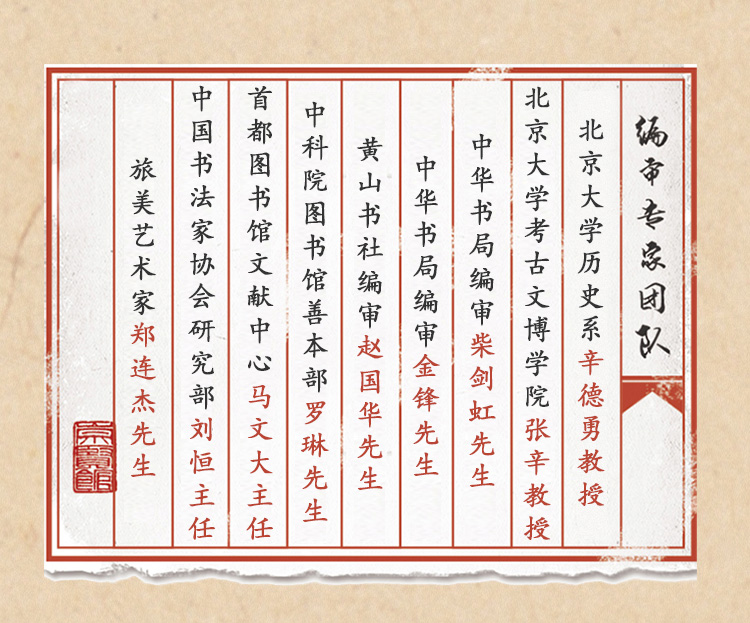 编审专家团队
北京大学历史系辛德勇教授
北京大学考古文博学院张辛教授
中华书局编审柴剑虹先生
中华书局编审金锋先生
黄山书社编审赵国华先生
中科院图书馆善本部罗琳先生
首都图书馆文献中心马文大主任
中国书法家协会研究部刘恒主任
旅美艺术家郑连杰先生
京贤馆